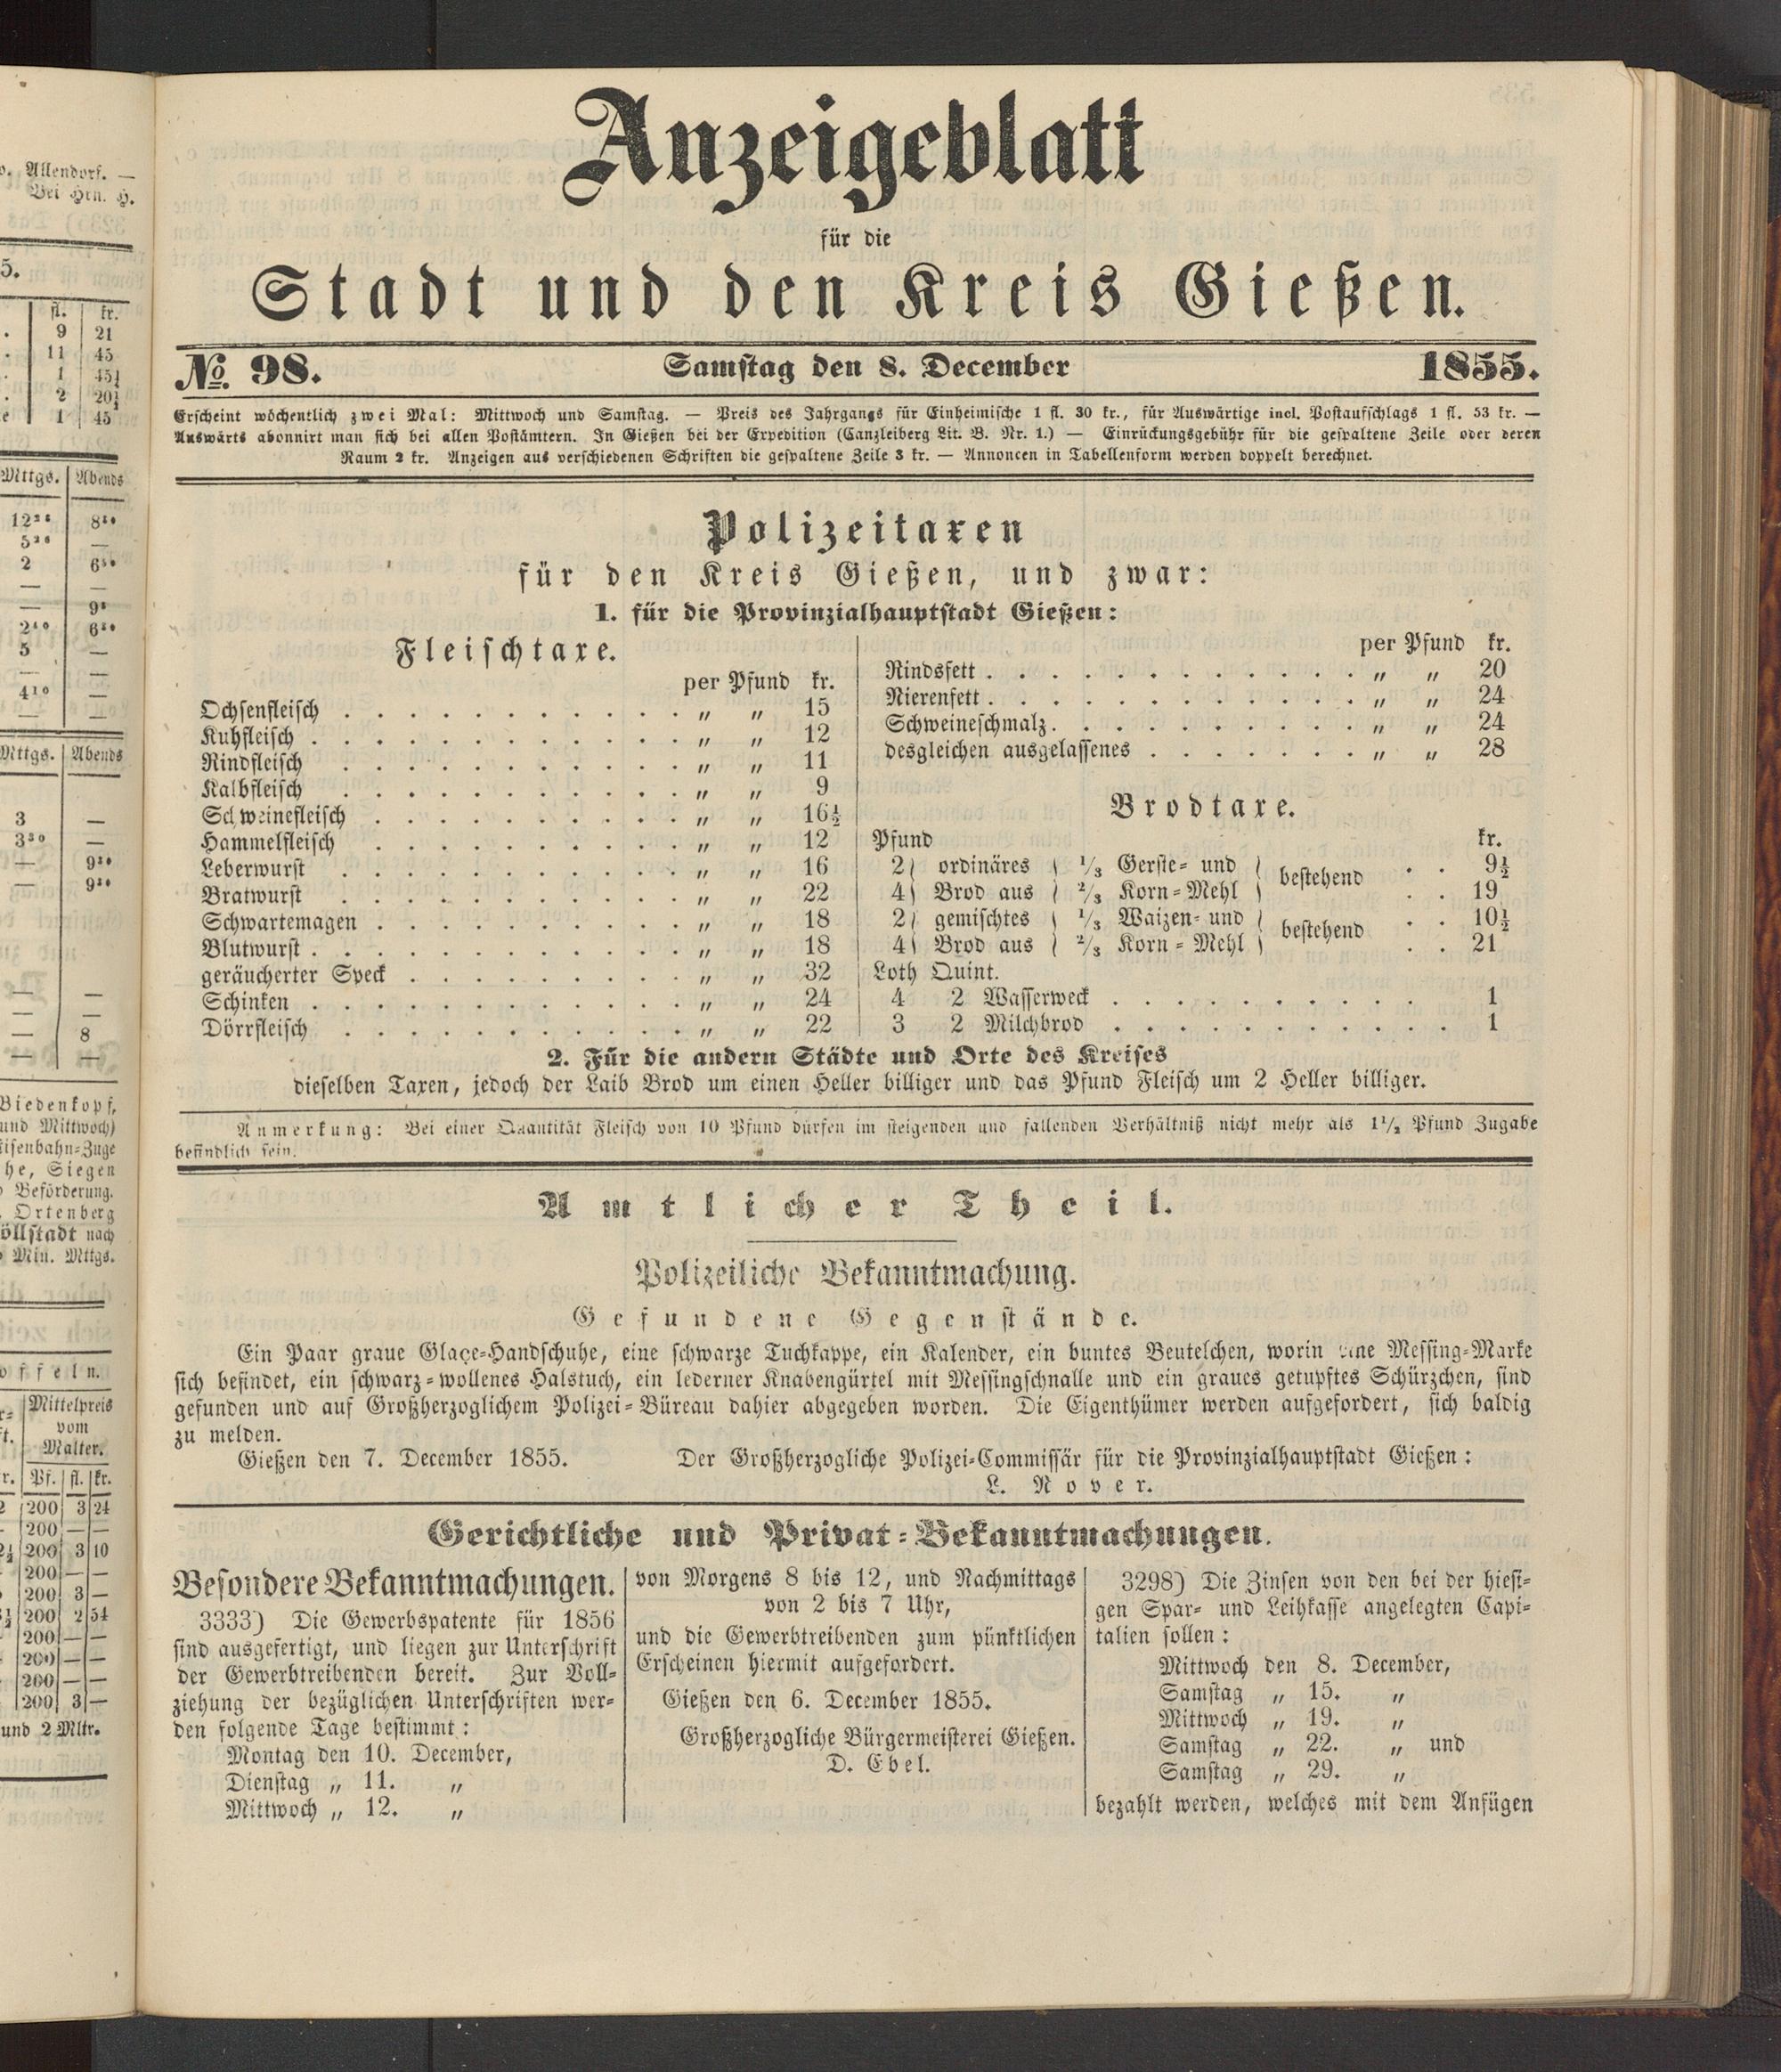 o. Allendorf. —
Bei Hrn. H.
5.
fl. kr.
9 21
11 45
1 45½
2 20½
1 45
Mttgs. Abends
2
5
Mttgs. Abends
3 —
8
Biedenkopf,
und Mittwoch)
Eisenbahn-Züge
he, Siegen
Beförderung.
Ortenberg
öllstadt nach
Min. Mttgs.
offeln.
Mittelpreis
vom
Malter.
Pf. fl. kr.
200 3 24
200 — —
200 3 10
200 — —
200 3 —
200 2 54
200 — —
200 — —
200 — —
200 3 —
und 2 Mltr.
Anzeigeblatt
für die
Stadt und den Kreis Gießen.
No. 98. Samstag den 8. December 1855.
Erscheint wöchentlich zwei Mal: Mittwoch und Samstag. — Preis des Jahrgangs für Einheimische 1 fl. 30 kr., für Auswärtige incl. Postaufschlags 1 fl. 53 kr. —
Auswärts abonnirt man sich bei allen Postämtern. In Gießen bei der Expedition (Canzleiberg Lit. B. Nr. 1.) — Einrückungsgebühr für die gespaltene Zeile oder deren
Raum 2 kr. Anzeigen aus verschiedenen Schriften die gespaltene Zeile 3 kr. — Annoncen in Tabellenform werden doppelt berechnet.
Polizeitaxen
für den Kreis Gießen, und zwar:
1. für die Provinzialhauptstadt Gießen:
Fleischtaxe.
per Pfund kr.
Ochsenfleisch . . . „ „ 15
Kuhfleisch . . . „ „ 12
Rindfleisch . . . „ „ 11
Kalbfleisch . . . „ „ 9
Schweinefleisch . . . „ „ 16½
Hammelfleisch . . . „ „ 12
Leberwurst . . . „ „ 16
Bratwurst . . . „ „ 22
Schwartemagen . . . „ „ 18
Blutwurst . . . „ „ 18
geräucherter Speck . . . „ „ 32
Schinken . . . „ „ 24
Dörrfleisch . . . „ „ 22
per Pfund kr.
Rindsfett . . . „ „ 20
Nierenfett . . . „ „ 24
Schweineschmalz . . . „ „ 24
desgleichen ausgelassenes . . . „ „ 28
Brodtaxe.
Pfund kr.
2 ordinäres ⅓ Gerste- und bestehend . . 9½
4 Brod aus ⅔ Korn-Mehl . . 19
2 gemischtes ⅓ Waizen- und bestehend . . 10½
4 Brod aus ⅔ Korn-Mehl . . 21
Loth Quint.
4 2 Wasserweck . . . 1
3 2 Milchbrod . . . 1
2. Für die andern Städte und Orte des Kreises
dieselben Taxen, jedoch der Laib Brod um einen Heller billiger und das Pfund Fleisch um 2 Heller billiger.
Anmerkung: Bei einer Quantität Fleisch von 10 Pfund dürfen im steigenden und fallenden Verhältniß nicht mehr als 1½ Pfund Zugabe
befindlich sein.
Amtlicher Theil.
Polizeiliche Bekanntmachung.
Gefundene Gegenstände.
Ein Paar graue Glaçe-Handschuhe, eine schwarze Tuchkappe, ein Kalender, ein buntes Beutelchen, worin eine Messing-Marke
sich befindet, ein schwarz-wollenes Halstuch, ein lederner Knabengürtel mit Messingschnalle und ein graues getupftes Schürzchen, sind
gefunden und auf Großherzoglichem Polizei-Büreau dahier abgegeben worden. Die Eigenthümer werden aufgefordert, sich baldig
zu melden.
Gießen den 7. December 1855. Der Großherzogliche Polizei-Commissär für die Provinzialhauptstadt Gießen:
L. Nover.
Gerichtliche und Privat-Bekanntmachungen.
Besondere Bekanntmachungen.
3333) Die Gewerbspatente für 1856
sind ausgefertigt, und liegen zur Unterschrift
der Gewerbtreibenden bereit. Zur Voll-
ziehung der bezüglichen Unterschriften wer-
den folgende Tage bestimmt:
Montag den 10. December,
Dienstag „ 11. „
Mittwoch „ 12. „
von Morgens 8 bis 12, und Nachmittags
von 2 bis 7 Uhr,
und die Gewerbtreibenden zum pünktlichen
Erscheinen hiermit aufgefordert.
Gießen den 6. December 1855.
Großherzogliche Bürgermeisterei Gießen.
D. Ebel.
3298) Die Zinsen von den bei der hiesi-
gen Spar- und Leihkasse angelegten Capi-
talien sollen:
Mittwoch den 8. December,
Samstag „ 15. „
Mittwoch „ 19. „
Samstag „ 22. „ und
Samstag „ 29. „
bezahlt werden, welches mit dem Anfügen